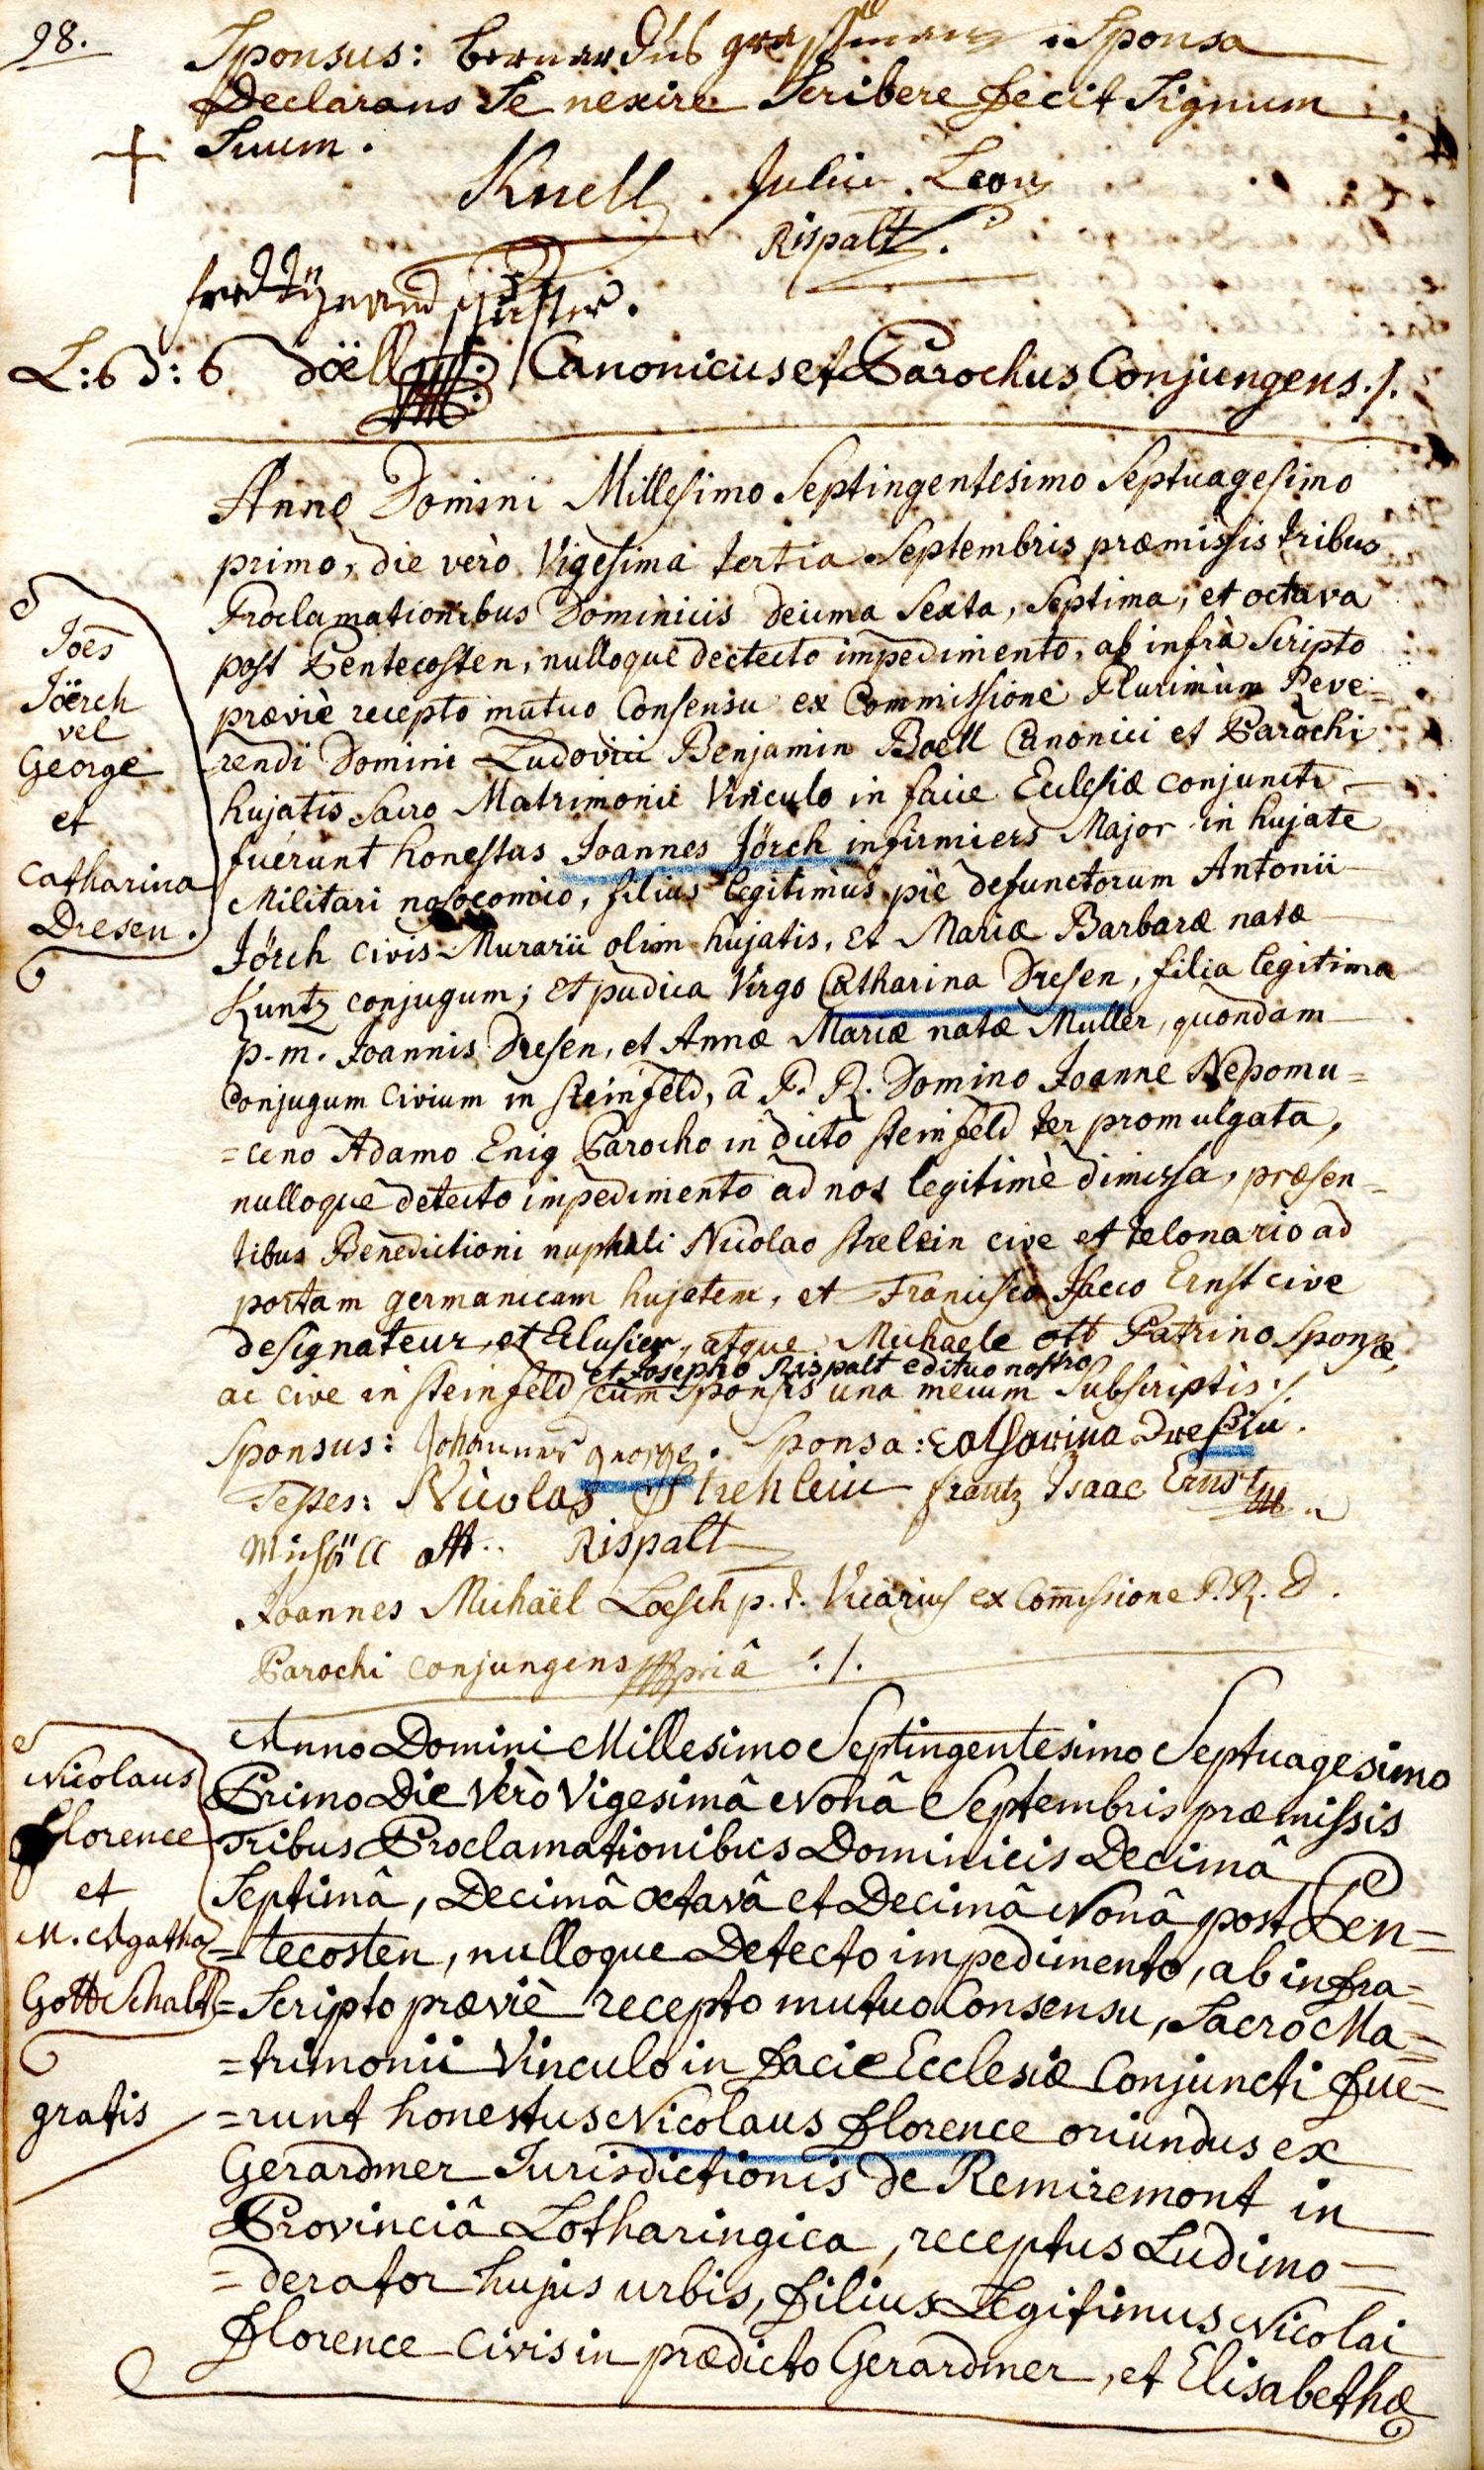 98.
Sponsus: bernardus grassmans Sponsa
Declarans Se nexire Scribere fecit Signum
+ Suum.
Knell. Julien. Leon
Rispalt.
ferdhynand schuster.
L: B: Böell Canonicus et Parochus Conjungens ./.
Anno Domini Millesimo Septingentesimo Septuagesimo
primo, die verò Vigesima tertia Septembris præmissis tribus
Proclamationibus Dominicis Deiuma Sexta, Septima, et octava
post Pentecosten, nulloque dectecto impedimento, ab infrà Scripto
præviè recepto mutuo Consensu ex Commissione Plurimùm Reve=
rendi Domini Ludovici Benjamin Boell Canonici et Parochi
hujatis Sacro Matrimonii Vinculo in facie Ecclesiæ conjuncti
fuerunt honestus Joannes Jörch infirmiers Major in hujate
Militari nosocomio, filius legitimus piè defunctorum Antonii
Jörch civis Murarii olim hujatis, et Mariæ Barbaræ natæ
Kuntz conjugum; et pudica Virgo Catharina Dresen, filia legitima
p.m. Joannis Dresen, et Annæ Mariæ natæ Muller, quondam
Conjugum Civium in Steinfeld, â P. R. Domino Joanne Nepomu=
=ceno Adamo Enig Parocho in dicto Steinfeld ter promulgata,
nulloque detecto impedimento ad nos legitimè dimissa, præsen=
tibus Benedictioni nuptiali Nicolao Strelein cive et telonario ad
portam germanicam hujatem, et Francisco Isaco Ernst cive
designateur et Eclusier, atque Michaele ott Patrino Sponsæ,
et Josepho Rispalt edituo nostro
ac cive in Steinfeld cum Sponsis una mecum Subscriptis ./.
Sponsus: Johannes george. Sponsa: Catharina Dresin.
Testes: Nicolas Strehlein frantz Isaac Ernst
Michäel ott. Rispalt
Joannes Michaël Loesch p.t. Vicarius ex Comissione P.R.D.
Parochi conjungens mppriâ ./.
Joes
Jöerch
vel
George
et
Catharina
Dresen.
Anno Domini Millesimo Septingentesimo Septuagesimo
Primo Die Verò Vigesimâ Nonâ Septembris præmissis
Tribus Proclamationibus Dominicis Decimâ
Septimâ, Decimâ Octavâ et Decimâ Nonâ post Pen=
=tecosten, nulloque Detecto impedimento, ab infra=
=Scripto præviè recepto mutuo Consensu, Sacro Ma=
=trimonii Vinculo in facie Ecclesiæ Conjuncti fue=
=runt honestus Nicolaus florence oriundus ex
Gerardmer Jurisdictionis de Remiremont in
Provinciâ Lotharingica, receptus Ludimo=
=derator hujus urbis, filius Legitimus Nicolai
florence Civis in prædicto Gerardmer, et Elisabethæ
Nicolaus
florence
et
M. Agatha
Gottschalk
gratis